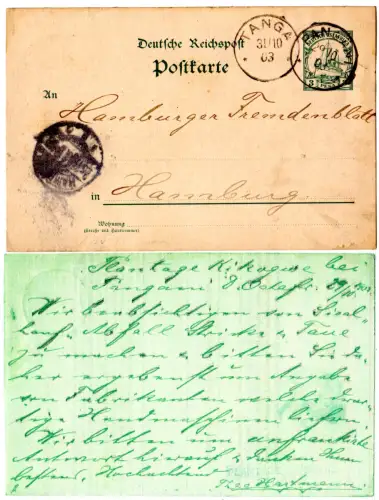 Deutsche Reichspost
Postkarte
TANGA
31/10
03
PAN
An
Hamburger Fremdenblatt
in Hamburg
Wohnung
(Straße und Hausnummer)
3
Plantage Kikogwe bei
Pangani D. Ostafr.
Wir beabsichtigen von Sisal
Abfall Stricke u. Taue
zu machen u. bitten Sie da
her ergebenst um Angabe
von Fabrikanten welche
Handmaschinen liefern.
Wir bitten um unfrankirte
Antwort hierauf, danken Ihnen
bestens, Hochachtend
Hartmann